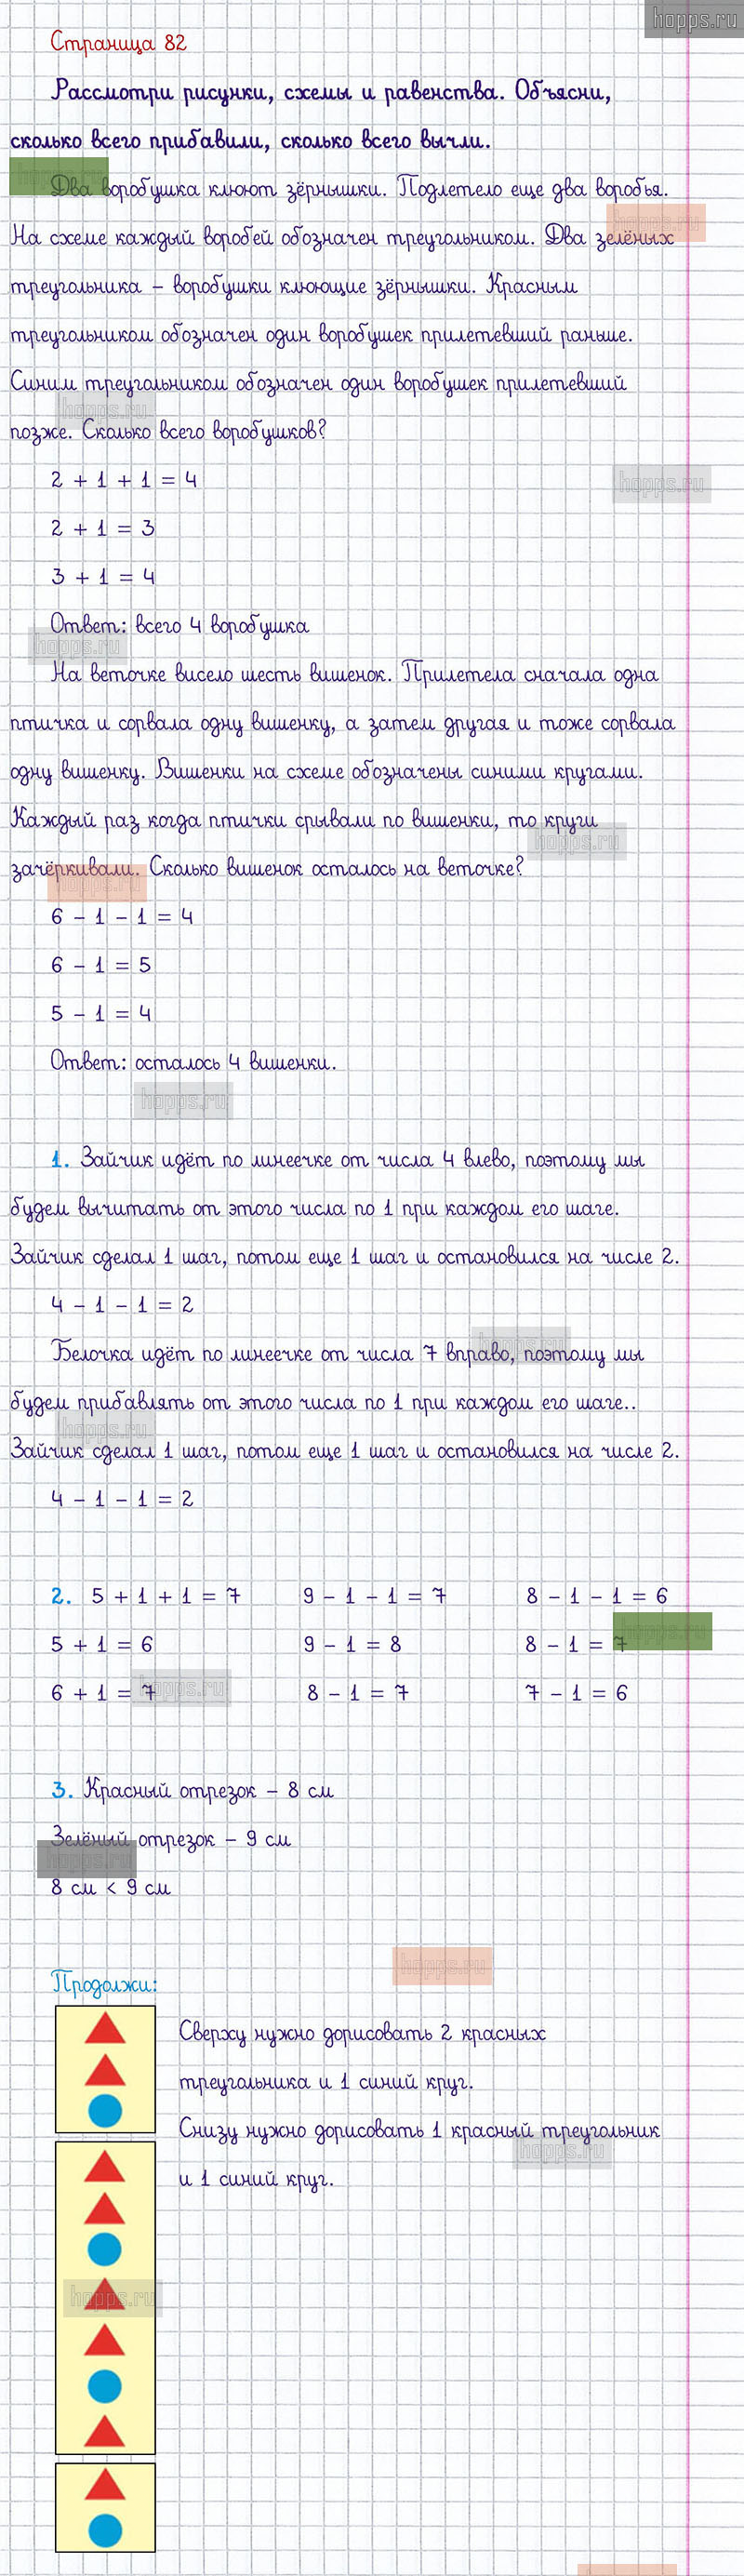 hopps.ru
Страница 82
Рассмотри рисунки, схемы и равенства. Объясни,
сколько всего прибавили, сколько всего вычли.
Два воробушка клюют зёрнышки. Подлетело еще два воробья.
На схеме каждый воробей обозначен треугольником. Два зелёных
треугольника – воробушки клюющие зёрнышки. Красным
треугольником обозначен один воробушек прилетевший раньше.
Синим треугольником обозначен один воробушек прилетевший
позже. Сколько всего воробушков?
2 + 1 + 1 = 4
2 + 1 = 3
3 + 1 = 4
Ответ: всего 4 воробушка
На веточке висело шесть вишенок. Прилетела сначала одна
птичка и сорвала одну вишенку, а затем другая и тоже сорвала
одну вишенку. Вишенки на схеме обозначены синими кругами.
Каждый раз когда птички срывали по вишенки, то круги
зачёркивали. Сколько вишенок осталось на веточке?
6 – 1 – 1 = 4
6 – 1 = 5
5 – 1 = 4
Ответ: осталось 4 вишенки.
1. Зайчик идёт по линеечке от числа 4 влево, поэтому мы
будем вычитать от этого числа по 1 при каждом его шаге.
Зайчик сделал 1 шаг, потом еще 1 шаг и остановился на числе 2.
4 – 1 – 1 = 2
Белочка идёт по линеечке от числа 7 вправо, поэтому мы
будем прибавлять от этого числа по 1 при каждом его шаге..
Зайчик сделал 1 шаг, потом еще 1 шаг и остановился на числе 2.
4 – 1 – 1 = 2
2. 5 + 1 + 1 = 7 9 – 1 – 1 = 7 8 – 1 – 1 = 6
5 + 1 = 6 9 – 1 = 8 8 – 1 = 7
6 + 1 = 7 8 – 1 = 7 7 – 1 = 6
3. Красный отрезок – 8 см
Зелёный отрезок – 9 см
8 см < 9 см
Продолжи:
Сверху нужно дорисовать 2 красных
треугольника и 1 синий круг.
Снизу нужно дорисовать 1 красный треугольник
и 1 синий круг.